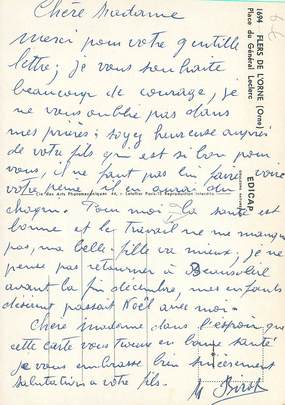 Chère Madame
Merci pour votre gentille
lettre; je vous souhaite
beaucoup de courage, je
ne vous oublie pas dans
mes prières; soyez heureuse auprès
de votre fils qui est si bon pour
vous, il ne faut pas lui faire voire
votre peine il en aurai du
chagrin. Pour moi la santé est
bonne et le travail ne me manque
pas, ma belle fille va mieux, je ne
pense pas retourner à Beausoleil
avant la fin décembre, mes enfants
désirent passait Noël avec moi.
Chère madame dans l'espoir que
cette carte vous trouve en bonne santé
je vous embrasse bien sincèrement
salutations a votre fils.
M Birot
1694 FLERS DE L'ORNE (Orne)
Place du Général Leclerc
EDICAP